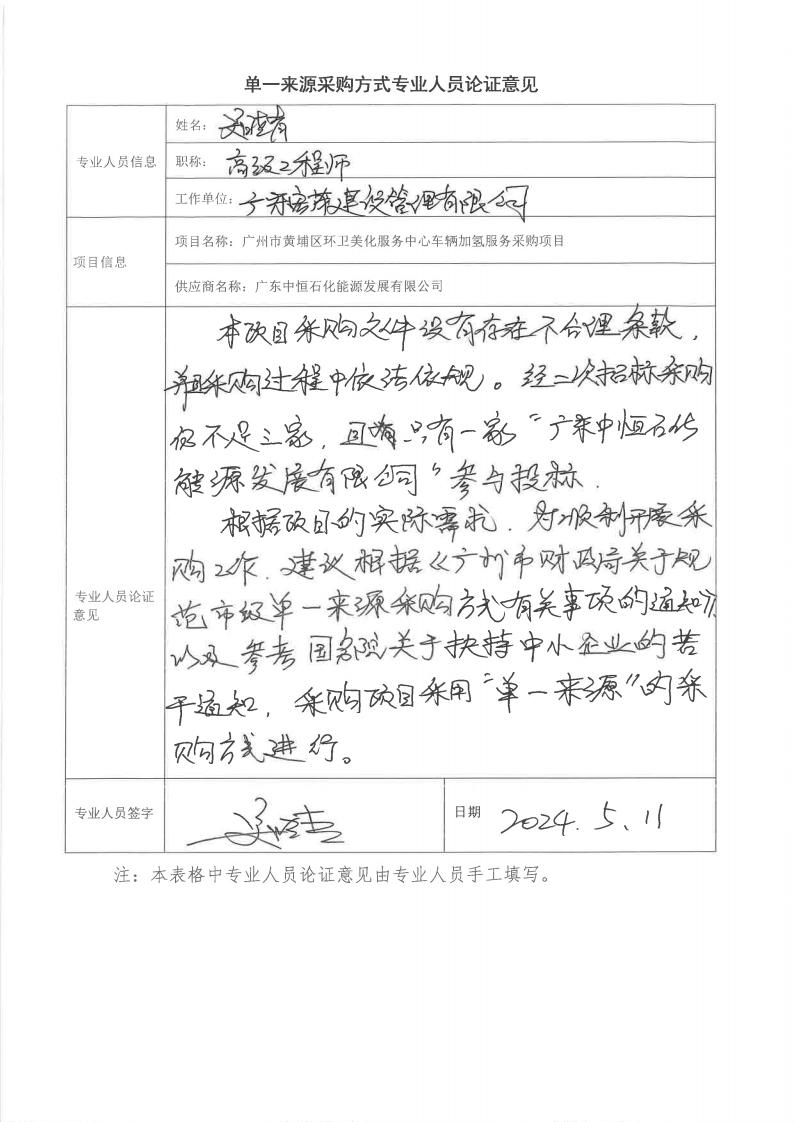 单一来源采购方式专业人员论证意见
专业人员信息
姓名：
职称：高级工程师
工作单位：广东宏茂建设管理有限公司
项目信息
项目名称：广州市黄埔区环卫美化服务中心车辆加氢服务采购项目
供应商名称：广东中恒石化能源发展有限公司
专业人员论证
意见
本项目采购文件没有存在不合理条款，
并且采购过程中依法依规。经二次招标采购
仍不足三家，且 只有一家“广东中恒石化
能源发展有限公司”参与投标.
根据项目的实际需求，为顺利开展采
购工作，建议根据《广州市财政局关于规
范市级单一来源采购方式有关事项的通知》，
以及参考国务院关于扶持中小企业的若
干通知，采购项目采用“单一来源”的采
购方式进行。
专业人员签字
日期
2024.5.11
注：本表格中专业人员论证意见由专业人员手工填写。